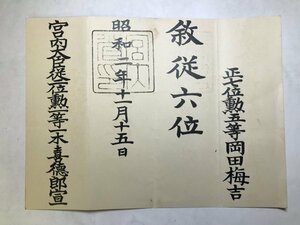 正七位勲五等岡田梅吉
敘從六位
昭和二年十一月十五日
宮内大臣從二位勲一等一木喜德郎宣